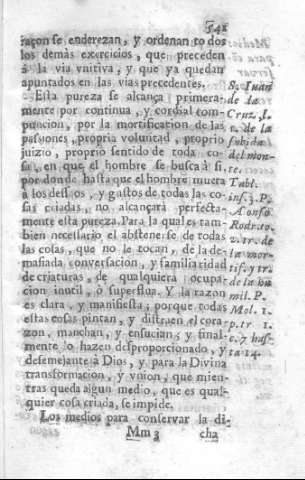 541
raçon se enderezan, y ordenan todos
los demàs exercicios, que preceden
à la via vnitiva, y que ya quedan
apuntados en las vias precedentes.
Esta pureza se alcança, primera-
mente por continua, y cordial com-
puncion, por la mortificacion de las
passiones, propria voluntad, proprio
juizio, proprio sentido de toda co-
sa, en que el hombre se busca à si,
por donde hasta que el hombre muera
à los desseos, y gastos de todas las co-
sas criadas, no alcançarà perfecta-
mente esta pureza. Para la qual es tam-
bien necessario el abstenerse de todas
las cosas, que no le tocan, de la de-
masiada conversacion, y familiaridad
de criaturas, de qualquiera ocupa-
cion inutil, ò superflua. Y la razon
es clara, y manifiesta, porque todas
estas cosas pintan, y distraen el cora-
zon, manchan, y ensucian; y final-
mente lo hazen desproporcionado, y
desemejante à Dios, y para la Divina
transformacion, y vnion, que mien-
tras queda algun medio, que es qual-
quier cosa criada, se impide.
Los medios para conservar la di-
Mm 3 cha
S. Juan
de la
Cruz, l.
1. de la
subida
del mon-
te.
Tabl.
inf. 3. P.
Alonso
Rodr. to.
2. tr. de
la mor-
tif. y tr.
de la hu
mil. P.
Mol. 1.
p. tr. 1.
c. 7 has-
ta 14.